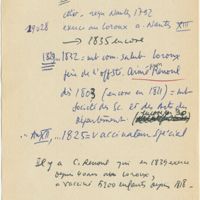 chir. reçu Nantes 1792
29028 exerce au Loroux a. Nantes XIII
→ 1835 encore
1829 1832 = mt com. salub Loroux
fr de l'offste. Aimé Renoul
dès 1803 (encore en 1811) = mt
Société des Sc. et des Arts du
Département
An XII, ... 1825 = vaccinateur spécial
Il y a C. Renoul qui en 1829 exerce
depuis 4 ans au Loroux,
a vacciné 5200 enfants depuis 1818.